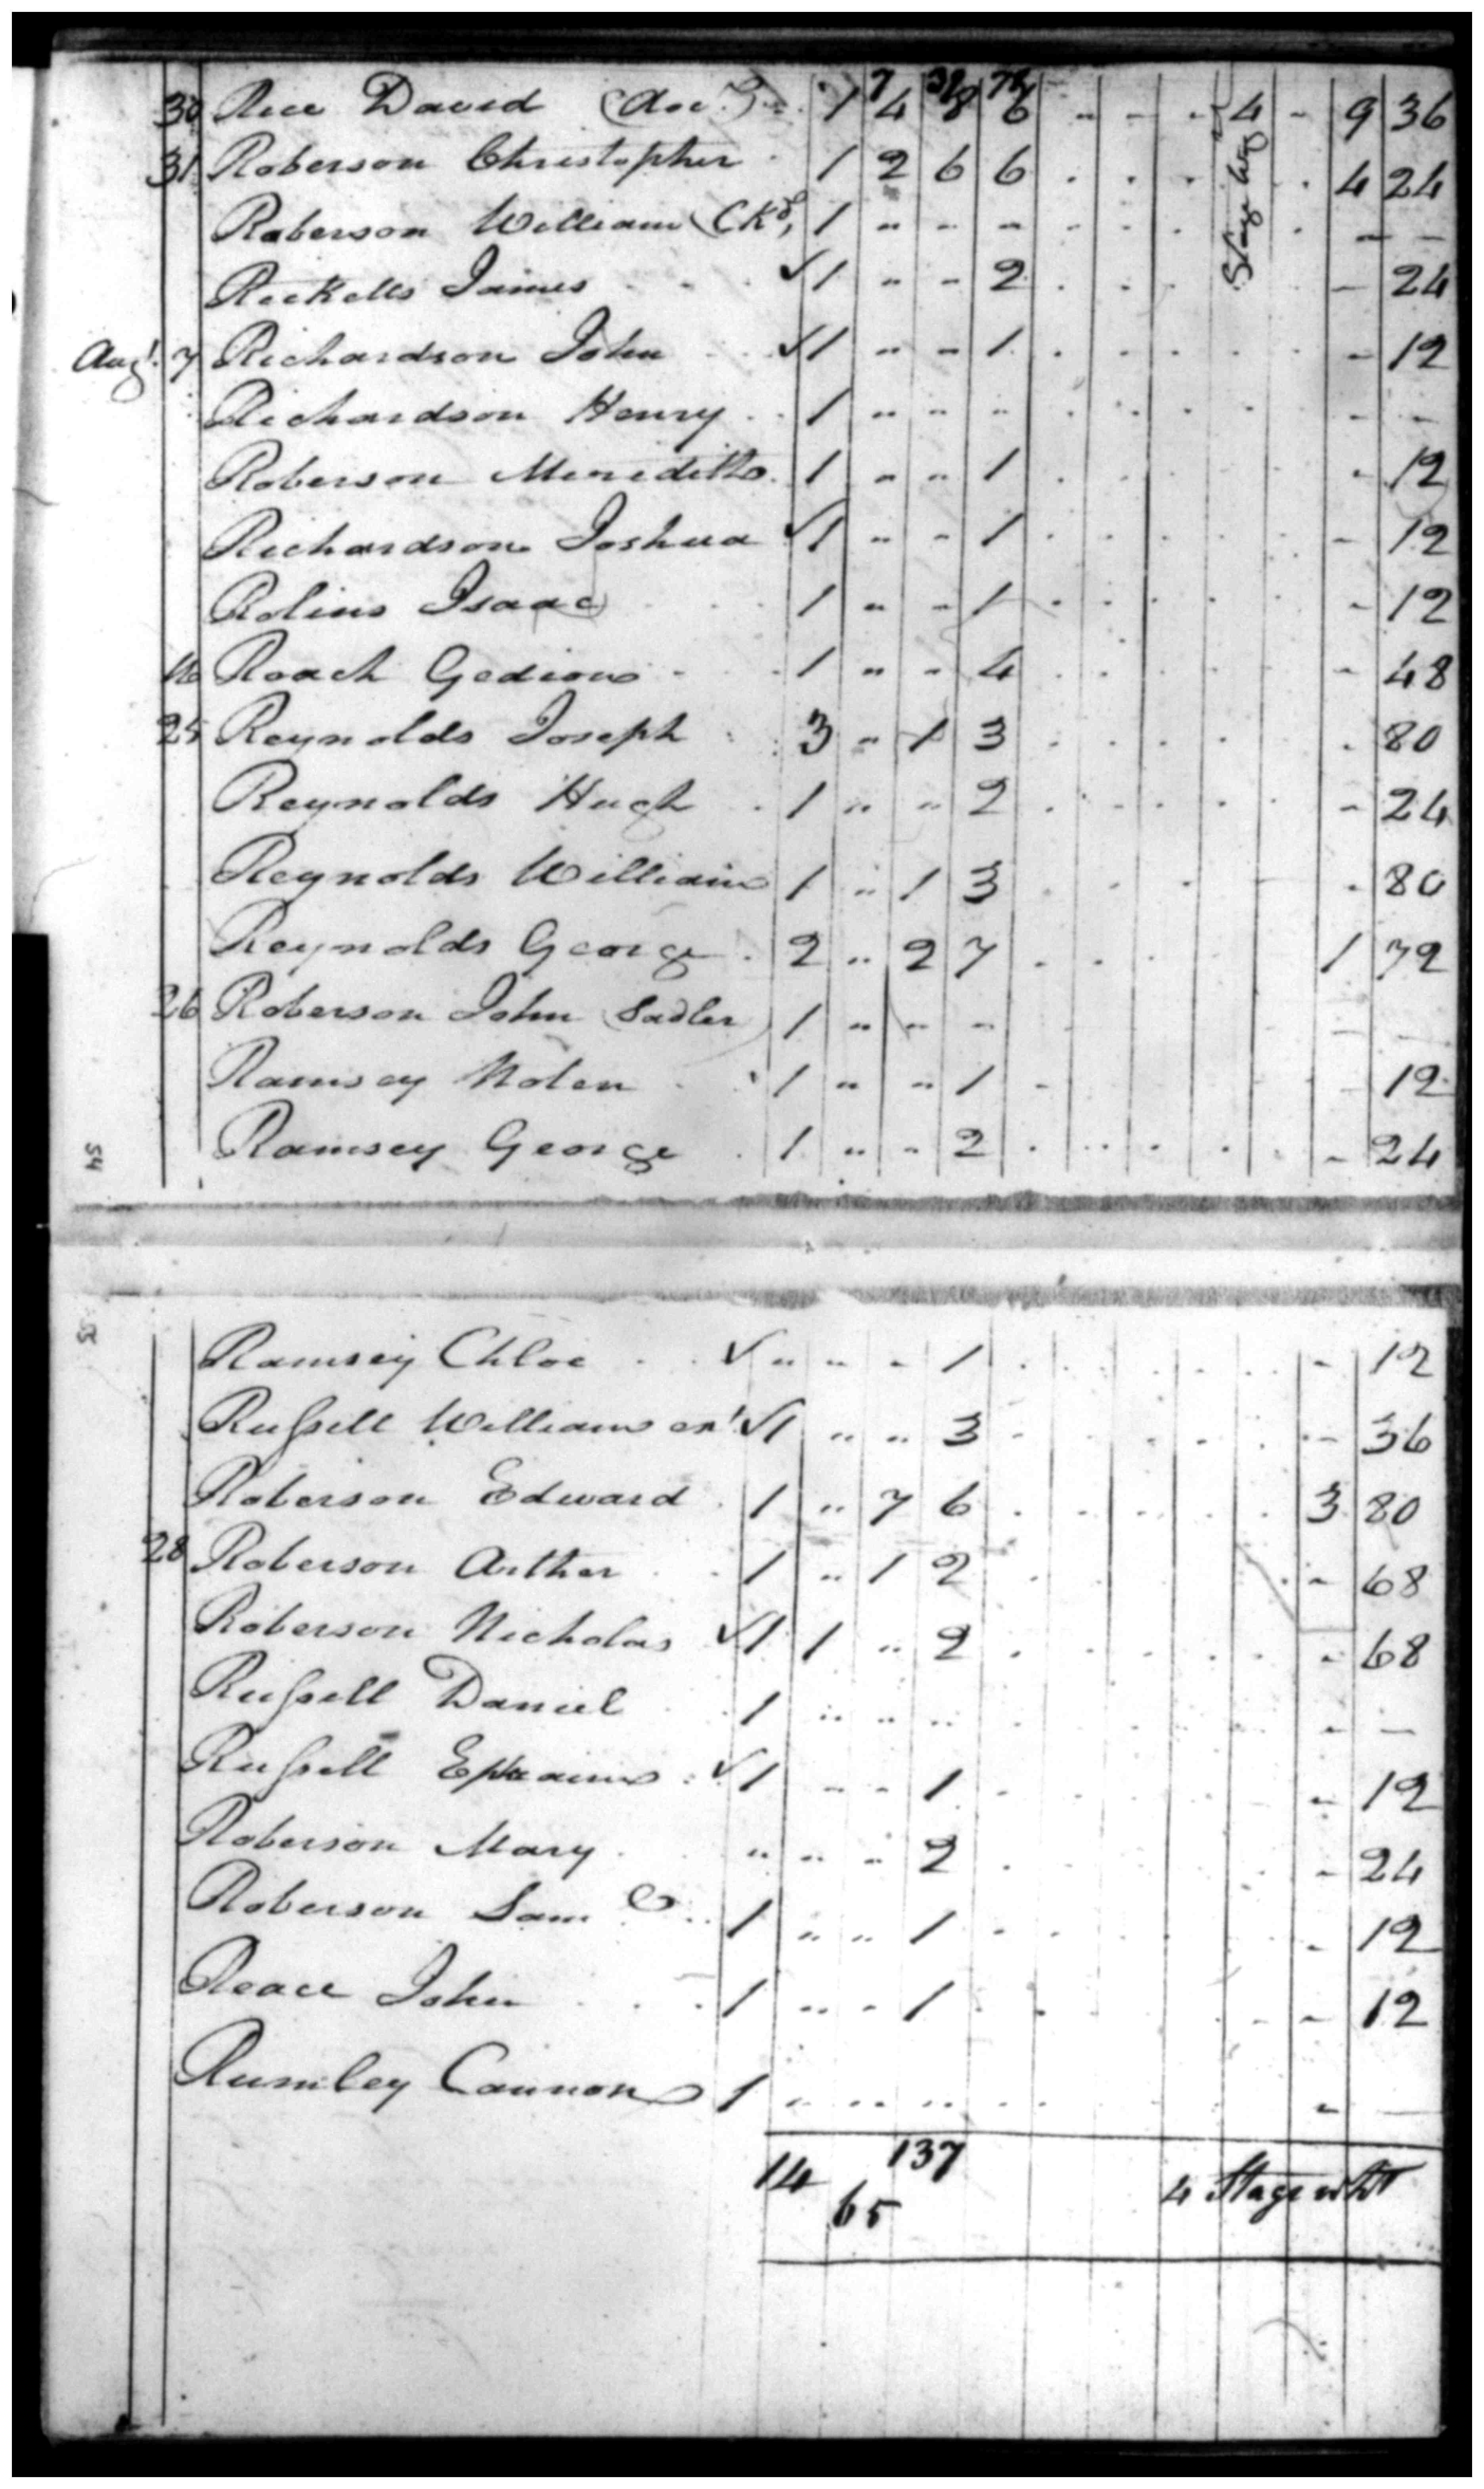 7 38 78
30 Rice David (doc.) 1 4 8 6 - - - 4 - 9 36
31 Roberson Christopher 1 2 6 6 . . . . 4 24
Roberson William (Ckd) 1 " - - . . . . — —
Stage
Ricketts James ✓ 1 " - 2 . . . — 24
Augt. 7 Richardson John ✓ 1 " - 1 . . . . . - 12
Richardson Henry 1 " " " . . . . - -
Roberson Meredith 1 " " 1 . . . - 12
Richardson Joshua ✓ 1 " - 1 . . . . . - 12
Rolins Isaac 1 " - 1 . . . . . - 12
Roach Gedion 1 " - 4 . . . . - 48
25 Reynolds Joseph 3 " 1 3 . . . . . 80
Reynolds Hugh 1 " " 2 . . . . - 24
Reynolds William 1 " 1 3 . . . . 80
Reynolds George 2 " 2 7 . . . 1 72
26 Roberson John (Sadler) 1 " " -
Ramsey Nolen 1 " " 1 - 12
Ramsey George 1 " - 2 . . . . . - 24
54
55
Ramsey Chloe ✓ " " - 1 . . . . - 12
Russell William ✓ 1 " " 3 - . . . - 36
Roberson Edward 1 " 7 6 . . . . . 3 80
28 Roberson Arther 1 " 1 2 . . . - 68
Roberson Nicholas ✓ 1 1 " 2 . . . . . - 68
Russell Daniel 1 " " " . . . . - —
Russell Ephraim ✓ 1 - - 1 . . . . - 12
Roberson Mary " " - 2 . . . - 24
Roberson Saml. 1 " " 1 . . . . - 12
Reace John 1 " - 1 . . . - 12
Rumley Cannon 1 " " " . . . - —
14 65 137 4 Stage